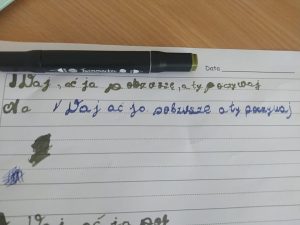 Touchmark
Date
Daj, ać ja pobruszę, a ty poczywaj
Na Daj ać ja pobruszę a ty poczywaj
Daj, ać ja po